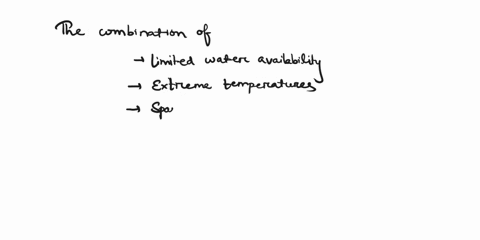 The combination of
→ Limited water availability
→ Extreme temperatures
→ Spa